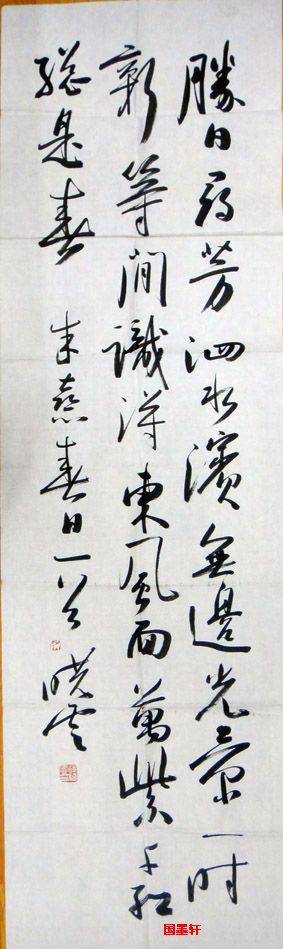 勝日尋芳泗水濱無邊光景一时
新等閒識得東風面萬紫千紅
總是春 朱熹春日一首 曉雲
国墨轩